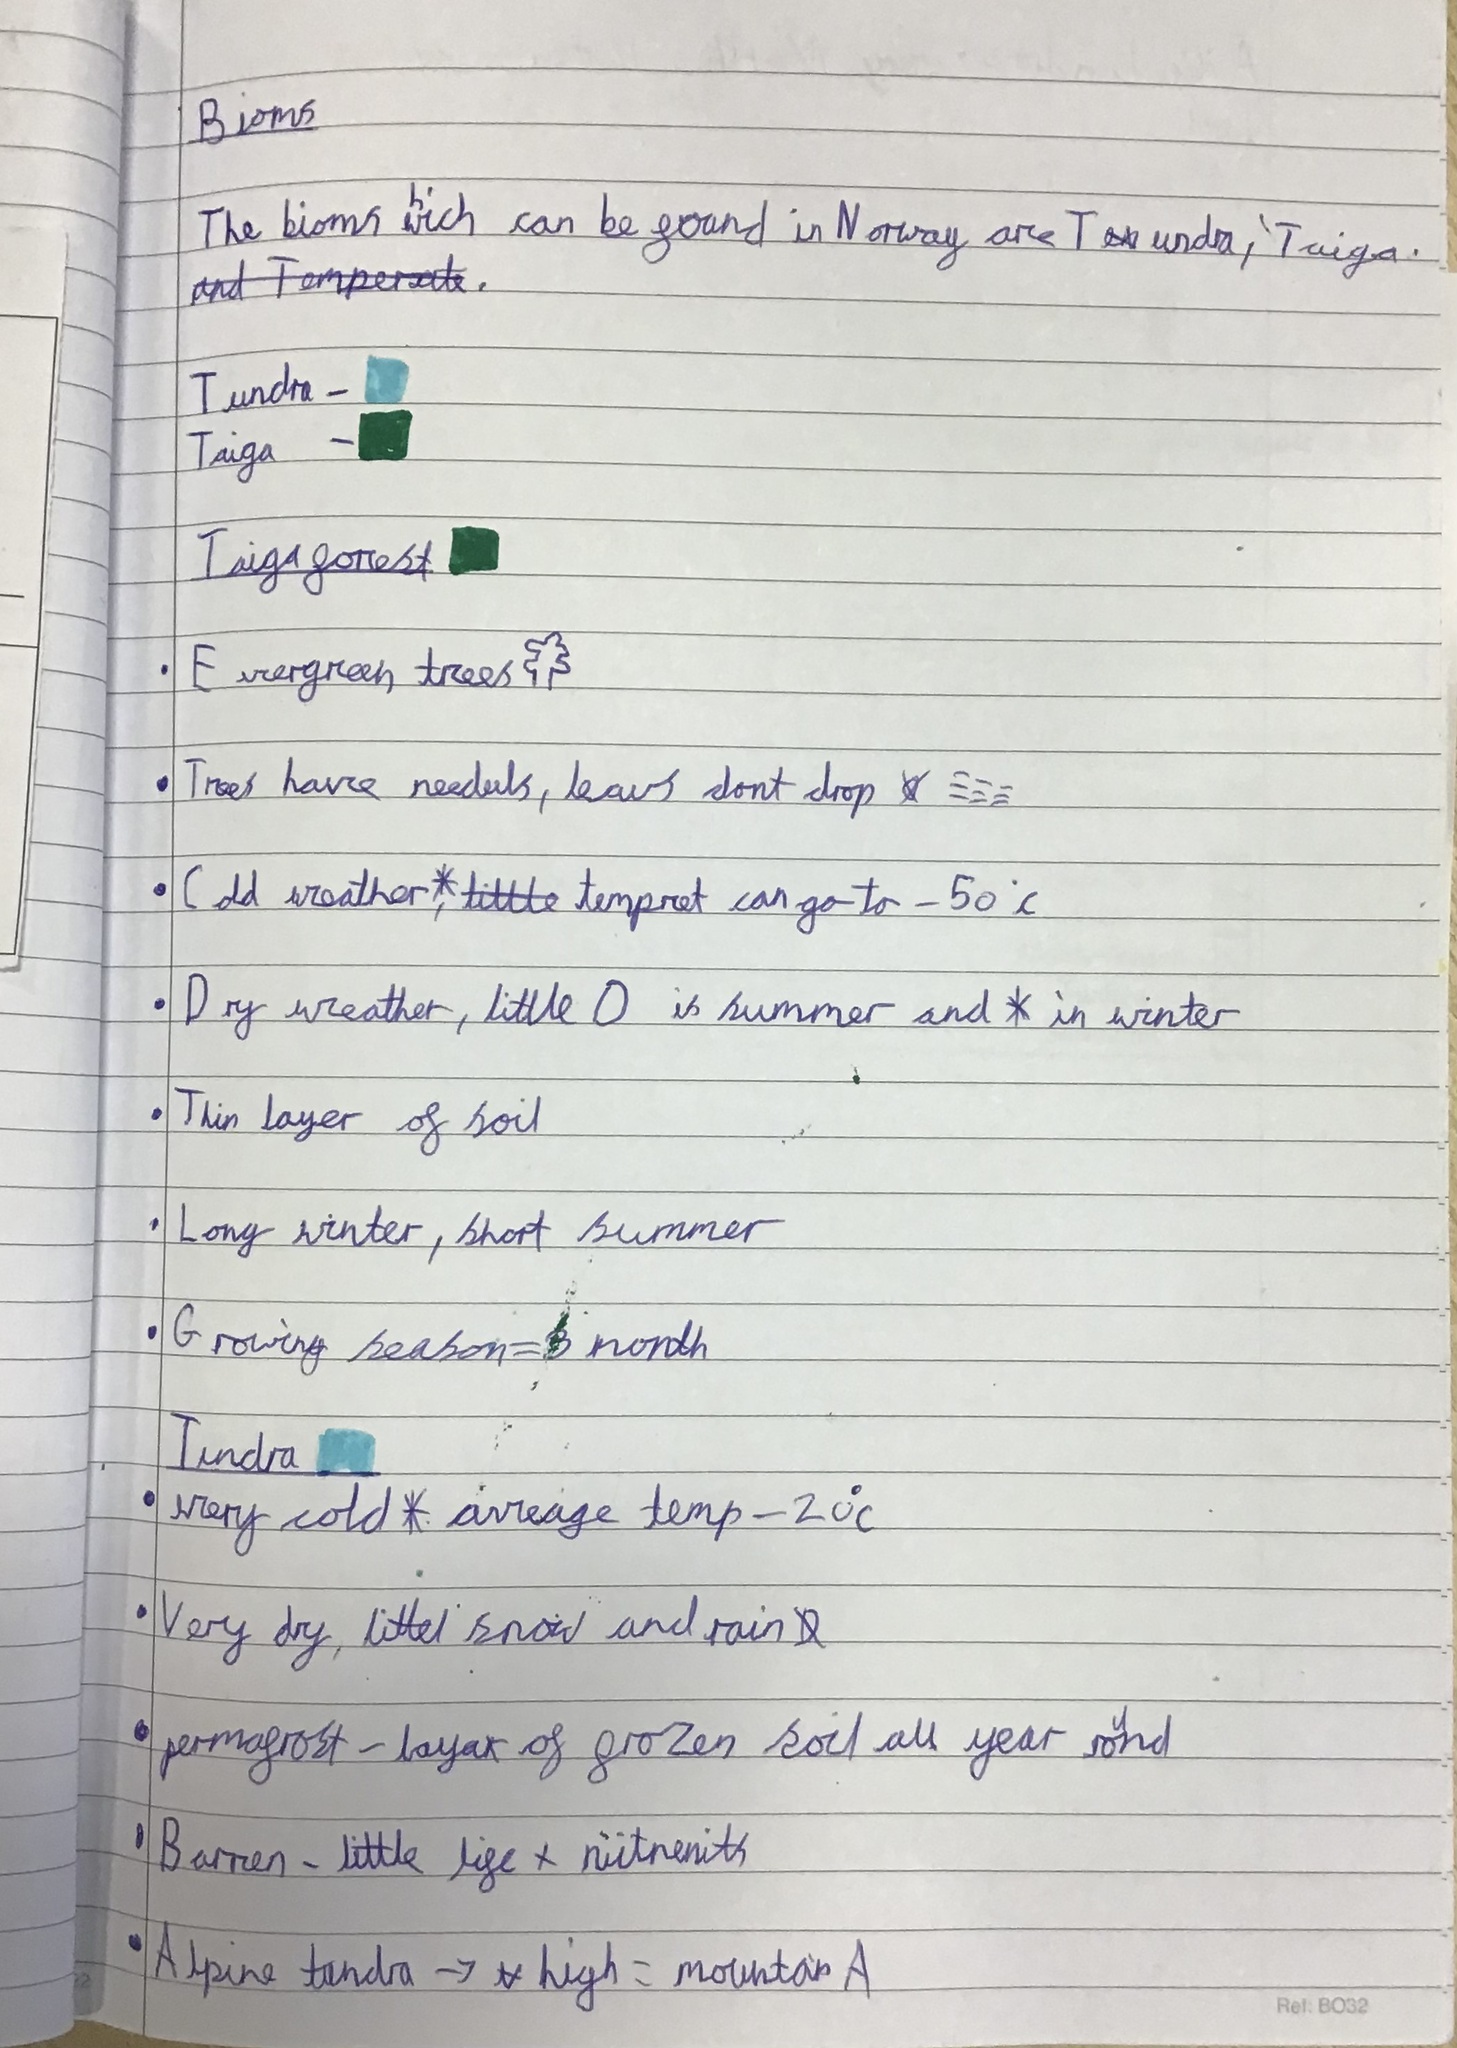 Bioms
The bioms which can be found in Norway are Tundra, Taiga.
and Temperate.
Tundra -
Taiga -
Taiga forrest
• Evergreen trees
• Trees have needels, leavs dont drop
• Cold weather, * little tempret can go to -50°c
• Dry weather, little O is summer and * in winter
• Thin layer of soil
• Long winter, short summer
• Growing season = 3 month
Tundra
• very cold * avreage temp -20°c
• Very dry, littel snow and rain
• permafrost - layar of frozen soil all year round
• Barren - little life + niitnenits
• Alpine tundra → high = mountain
Ref: BO32